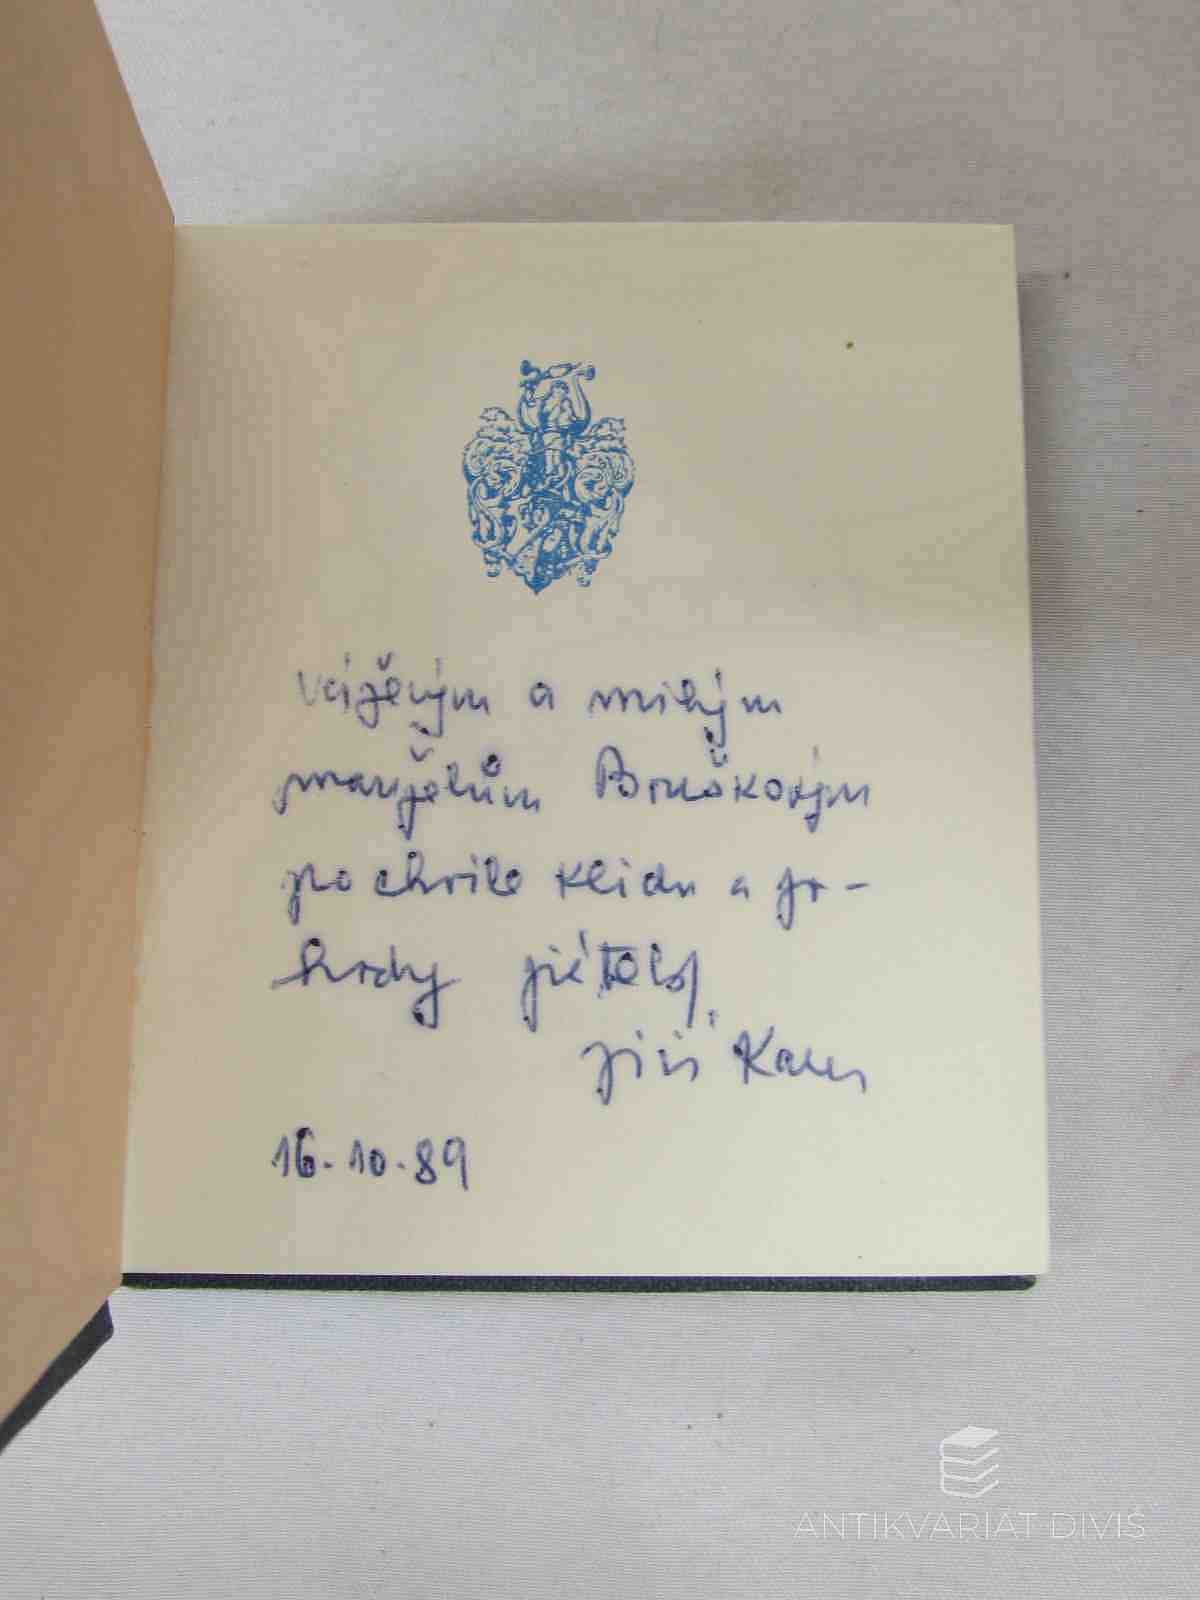 Váženým a milým
manželům Bruškovým
pro chvíle klidu a po-
hody přátelsky
Jiří
16.10.89
ANTIKVARIAT DIVIŠ